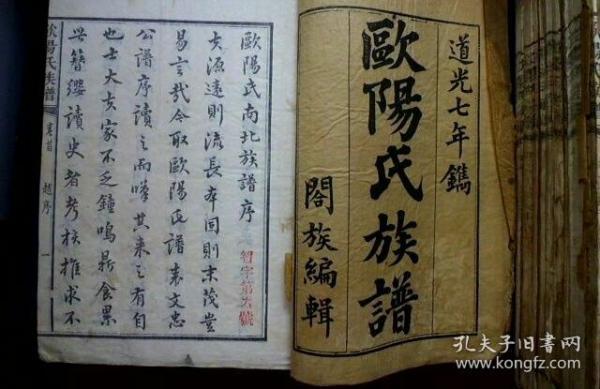 道光七年鐫
歐陽氏族譜
閤族編輯
歐陽氏南北族譜序
夫源遠則流長本固則末茂豈
易言哉今取歐陽氏譜表文忠
公譜序讀之而嘆其來之有自
也士大夫家不乏鐘鳴鼎食累
世簪纓讀史者考核推求不
智字第六號
歐陽氏族譜
卷首
趙序
一
孔夫子旧书网
www.kongfz.com